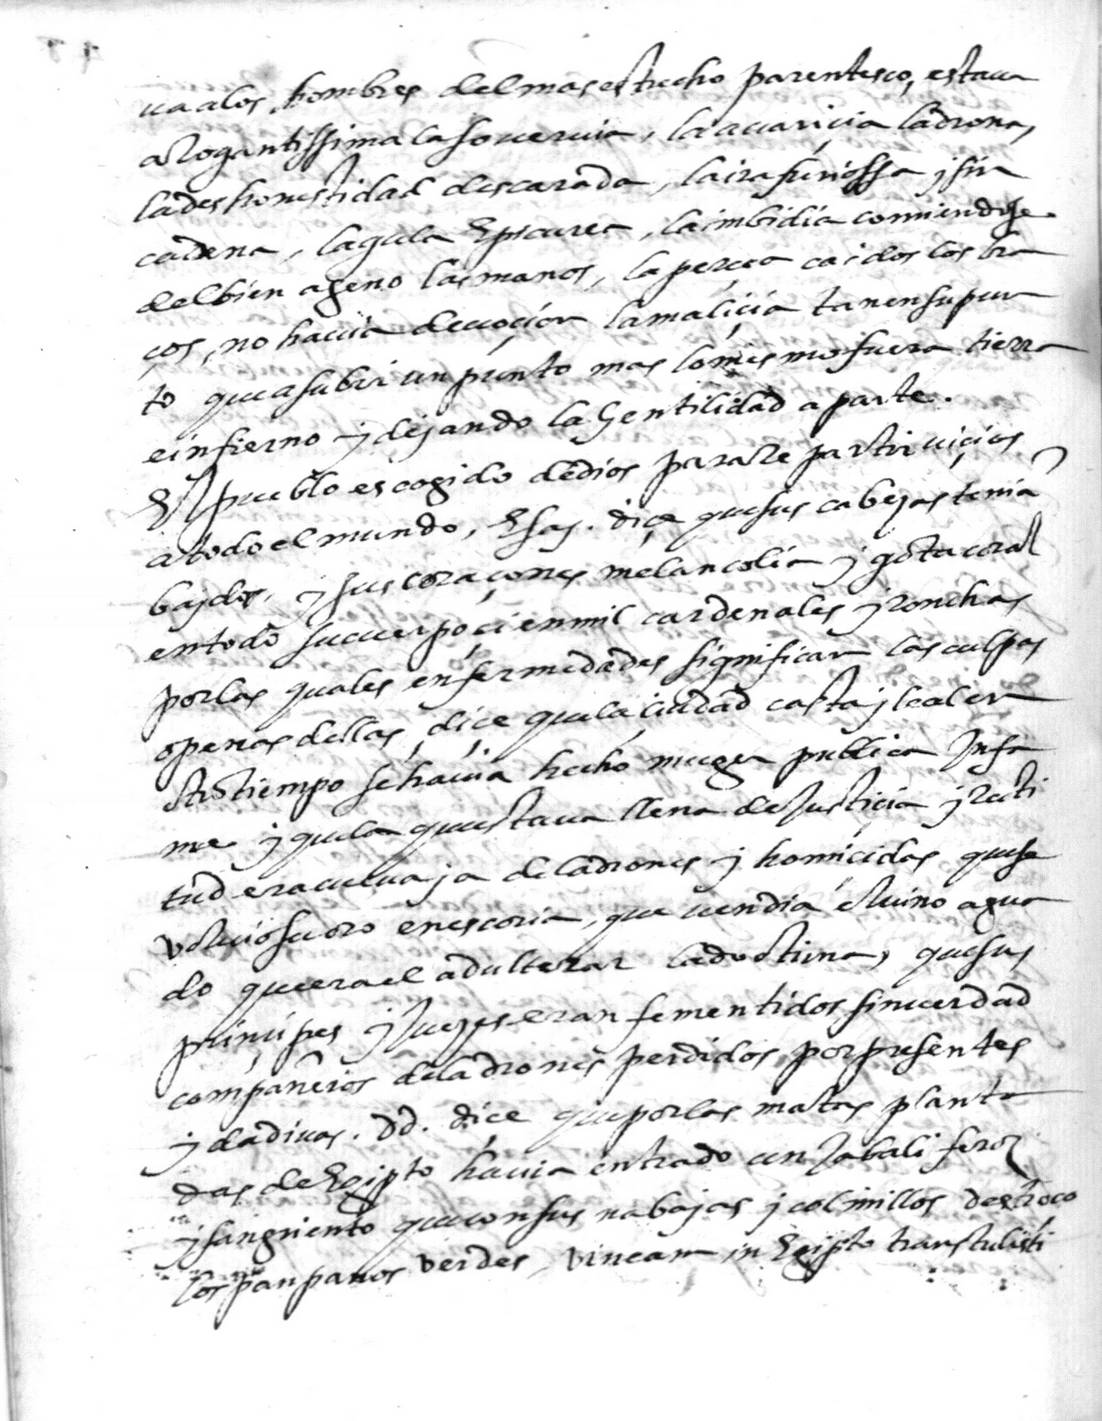 ua a los hombres del mas estrecho parentesco, estaua
arrogantissima la soueruia, la auariçia ladrona,
la deshonestidad descarada, la ira furiossa y sin
cadena, la gula Epicurea, la imbidia comiendose
del bien ageno las manos, la pereça caidos los bra
ços, no hauia deuoçion la maliçia tan en su pun
to que a subir un punto mas lo mismo fuera tierra
e infierno y dejando la Gentilidad a parte.
El pueblo escogido de dios para Repartir viçios
a todo el mundo, Esay. diçe que sus cabezas tenia
bajdos, y sus coraçones melancolia y gota coral
en todo su cuerpo çien mil cardenales y ronchas
por las quales enfermedades significan las culpas
o penas dellas, diçe que la çiudad casta y leal en
otro tiempo se hauia hecho muger publica Infa
me y que la que estaua llena de Justiçia y recti
tud era cueua ja de ladrones y homiçidas, que se
voluio su oro en escoria, que uendia el uino agua
do que era el adulterar la doctrina, que sus
prinçipes y Juezes eran fementidos sin uerdad
compañeros de ladrones perdidos por presentes
y dadiuas. Dd. diçe que por las matas planta
das de Egipto hauia entrado un Jabali feroz
y sangriento que con sus nabajas y colmillos destroço
los panpanos verdes, vineam in Egipto transtulisti